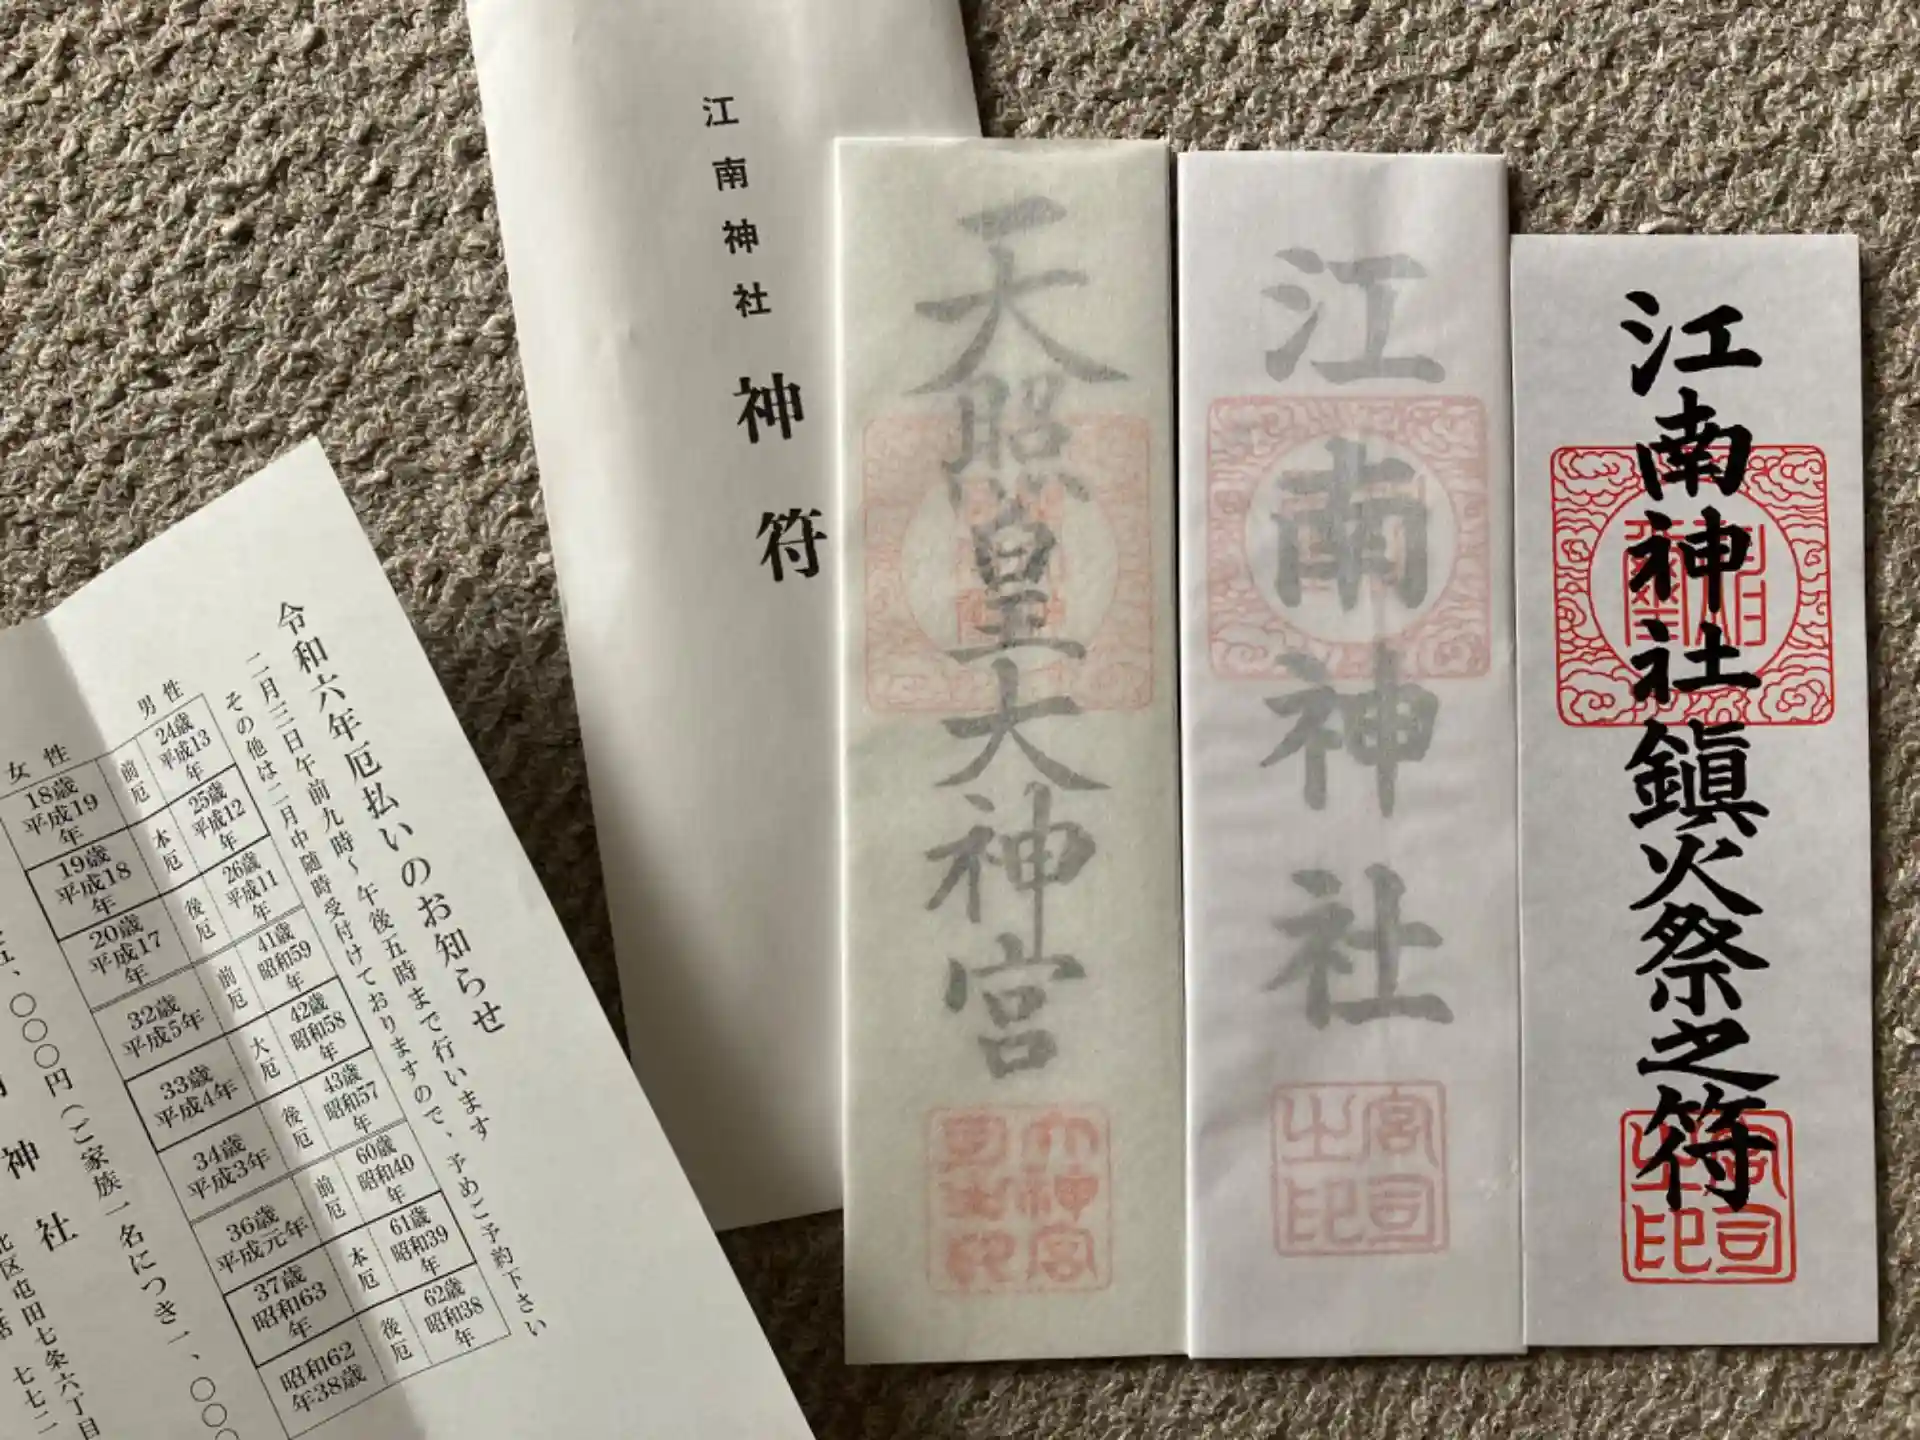 江南神社
神符
天照皇大神宮
大神宮
江南神社
宮司之印
江南神社鎮火祭之符
宮司之印
令和六年厄払いのお知らせ
二月三日午前九時~午後五時まで行います
その他は二月中随時受付けておりますので、予めご予約下さい
男性
24歳 平成13年 前厄
25歳 平成12年 本厄
26歳 平成11年 後厄
41歳 昭和59年 前厄
42歳 昭和58年 大厄
43歳 昭和57年 後厄
60歳 昭和40年 前厄
61歳 昭和39年 本厄
62歳 昭和38年 後厄
女性
18歳 平成19年
19歳 平成18年
20歳 平成17年
32歳 平成5年
33歳 平成4年
34歳 平成3年
36歳 平成元年
37歳 昭和63年
昭和62年38歳
、〇〇〇円(ご家族一名につき一、〇〇
神社
北区屯田七条六丁目
七七二